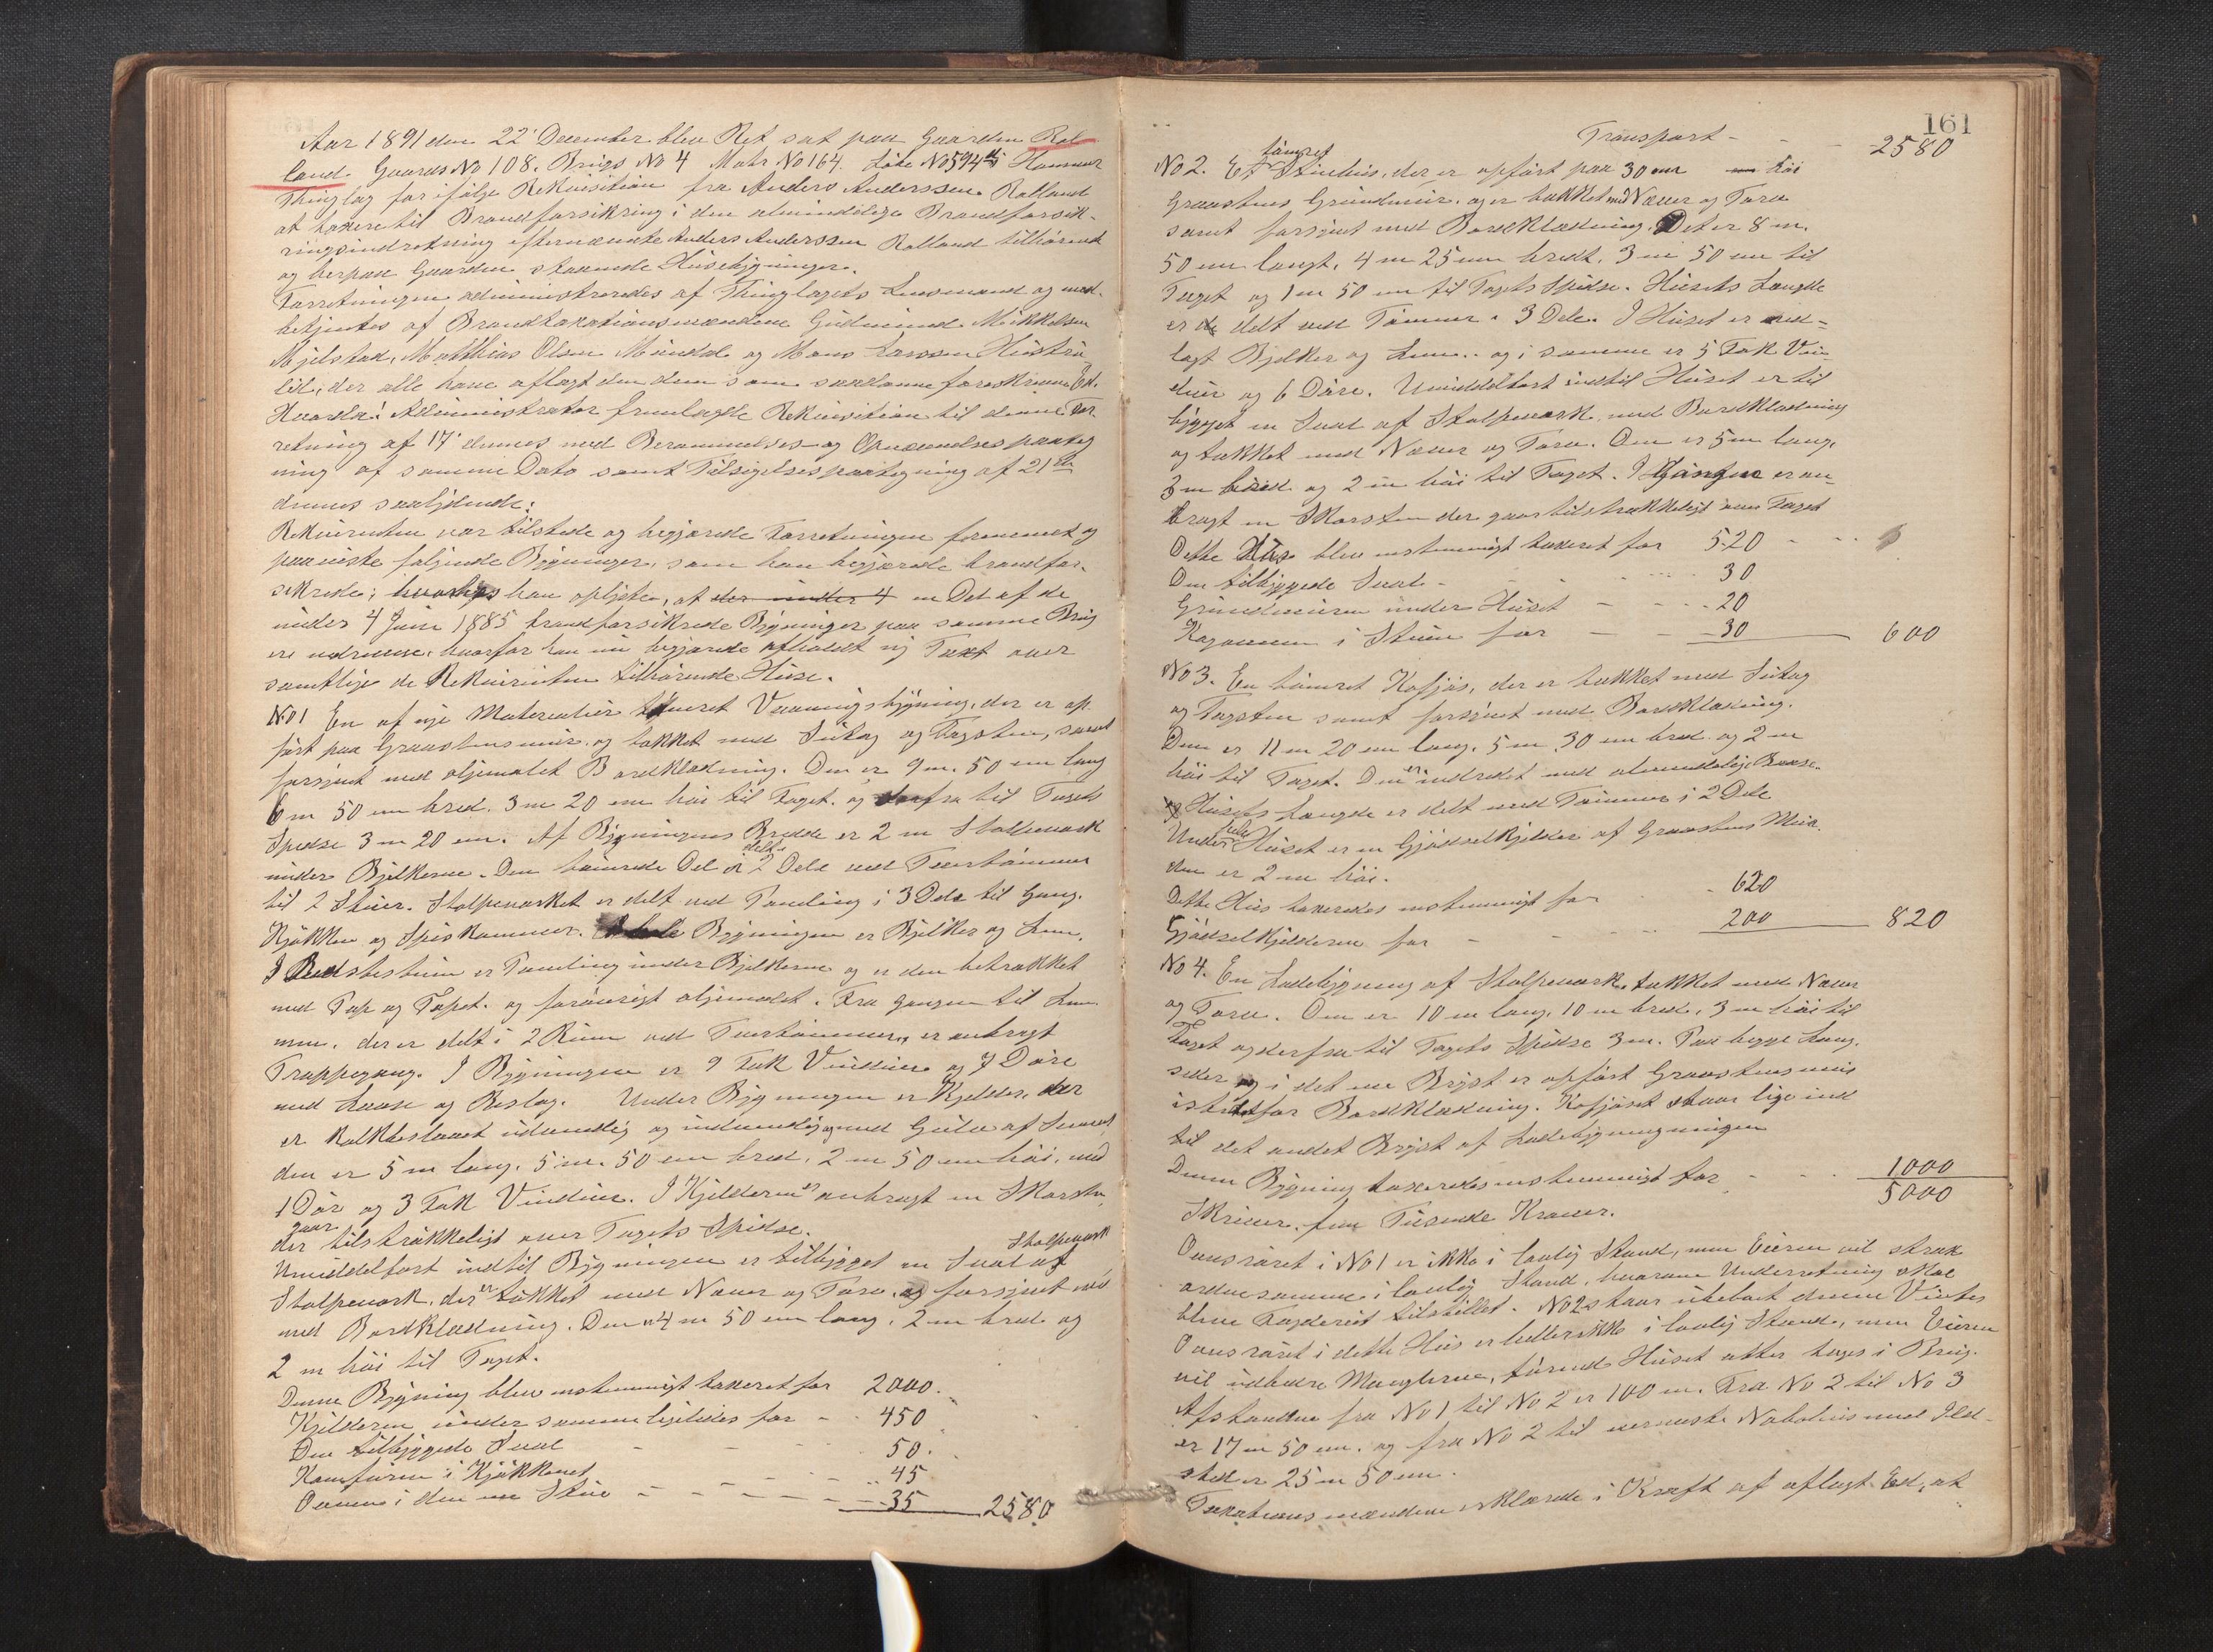 Aar 1891 den 22' December blev Ret sat paa Gaarden Rol
land Gaards No 108, Brugs No 4 Matr No 164. Löbe No 594 Hammer
Thinglag for ifölge Rekvisition fra Anders Anderssen Rolland
at taxere til Brandforsikring i den almindelige Brandforsik-
ringsindretning efternævnte Anders Anderssen Rolland tilhörende
og herpaa Gaarden staaende Husebygninger.
Forretningen administreredes af Thinglagets Lensmand og med-
betjentes af Brandtaxationsmændene Gudmund Mikkelsen
Mjelstad, Matthias Olsen Mundal og Mons Larssen Hustrü-
lid, der alle have aflagt den dem som saadanne foreskrevne Ed.
Hvorda! Administrator fremlagde Rekvisition til denne For
retning af 17' dennes med Berammelses og Opnævnelsespaateg
ning af samme Dato samt Tilsigelsespaategning af 21de
dennes saalydende:
Rekvirenten var tilstede og begjærede Forretningen fremmet og
paaviste følgende Bygninger, som han begjærede brandfor-
sikrede; hvorhos han oplyste, at der under 4 en Del af de
under 4 Juni 1885 brandforsikrede Bygninger paa samme Brug
ere nedrevne, hvorfor han nu begjærede afholdt ny Taxt over
samtlige de Rekvirenten tilhörende Huse.
No 1 En af nye Materialier tömret Vaaningsbygning, der er op
fört paa Graastensmuur, og takket med Sutag og Tagsten, samt
forsynet med oljemalet Bordklædning. Den er 9 m. 50 cm lang
6 m 50 cm bred. 3 m 20 cm höi til Taget. og derfra til Tagets
Spidse 3 m 20 cm. Af Bygningens Bredde er 2 m Stolpeværk
under Bjelkerne. Den tömrede Del er delt i 2 Dele ved Tvertömmer
til 2 Stuer. Stolpeværket er delt ved Paneling i 3 Dele til Gang.
Kjökken og Spiskammer. I hele Bygningen er Bjelker og Lem.
I Bedstestuen er Paneling under Bjelkerne og er den betrækket
med Pap og Tapet. og forövrigt oljemalet. Fra Gangen til Lem
men, der er delt i 2 Rum ved Tvertömmer, er anbragt
Trappegang. I Bygningen er 9 Fak Vinduer og 7 Döre
med Laase og Beslag. Under Bygningen er Kjelder, der
er kalkbeslaaet udvendig og indvendig og med Gulv af Cement
den er 5 m lang. 5 m. 50 cm bred, 2 m 50 cm höi, med
1 Dör og 3 Fak Vinduer. I Kjelderen er anbragt en Skorsten,
der gaar tilstrækkeligt over Tagets Spidse.
Umiddelbart indtil Bygningen er tilbygget en Sval af Stolpeværk
Stolpeværk, der er takket med Næver og Torv, og forsynet med
med Bordklædning. Den er 4 m 50 cm lang, 2 m bred og
2 m höi til Taget.
Denne Bygning blev enstemmigt taxeret for 2000.
Kjelderen under samme ligeledes for - 450
Den tilbyggede Sval - - - 50.
Komfuren i Kjökkenet - - - 45
Ovnen i den ene Stue - - - 35 2580
161
Transport - - 2580
No 2. Et tömret Stuehus, der er opfört paa 30 cm höi
Graastens Grundmuur, og er takket med Næver og Torv
samt forsynet med Bordklædning. Det er 8 m.
50 cm langt, 4 m 25 cm bredt, 3 m 50 cm til
Taget og 1 m 50 cm til Tagets Spidse. Husets Længde
er delt ved Tömmer i 3 Dele. I Huset er ned-
lagt Bjelker og Lem.. og i samme er 5 Fak Vin
duer og 6 Döre. Umiddelbart indtil Huset er til
bygget en Sval af Stolpeværk med Bordklædning
og takket med Næver og Torv. Den er 5 m lang,
3 m bred og 2 m höi til Taget. I Gangen er an
bragt en Skorsten der gaar tilstrækkeligt over Taget
Dette Hus blev enstemmigt taxeret for 520 - -
Den tilbyggede Sval - - 30
Grundmuren under Huset - - 20
Kogeovnen i Stuen for - - 30 600
No 3. En tömret Kofjös, der er takket med Sutag
og Tagsten samt forsynet med Bordklædning.
Den er 11 m 20 cm lang, 5 m 30 cm bred og 2 m
höi til Taget. Den er indredet med almindelige Baase.
og Husets Længde er delt ved Tömmer i 2 Dele
Under hele Huset er en Gjödselkjelder af Graastens Muur.
den er 2 m höi.
Dette Hus taxeredes enstemmigt for - 620
Gjödselkjelderen for - - 200 820
No 4. En Ladebygning af Stolpeværk, takket med Næver
og Torv. Den er 10 m lang, 10 m bred, 3 m höi til
Taget og derfra til Tagets Spidse 3 m. Paa begge Lang-
sider og i det ene Bryst er opfört Graastensmuur
istedetfor Bordklædning. Kofjöset staar lige ind
til det andet Bryst af Ladebygnungningen
Denne Bygning taxeredes enstemmigt for - - 1000
5000
Skriver fem Tusende Kroner.
Ovnsröret i No 1 er ikke i lovlig Stand, men Eieren vil strax
ordne samme i lovlig Stand, hvorom Underretning skal
blive Fogderiet tilstillet. No 2 staar ubeboet denne Vinter
Ovnsröret i dette Hus er hellerikke i lovlig Stand, men Eieren
vil udbedre Manglerne, förend Huset atter tages i Brug.
Afstanden fra No 1 til No 2 er 100 m. Fra No 2 til No 3
er 17 m 50 cm. og fra No 2 til nærmeste Nabohus med Ild-
sted er 25 m 50 cm.
Taxationsmændene erklærede i Kraft af aflagt Ed, at